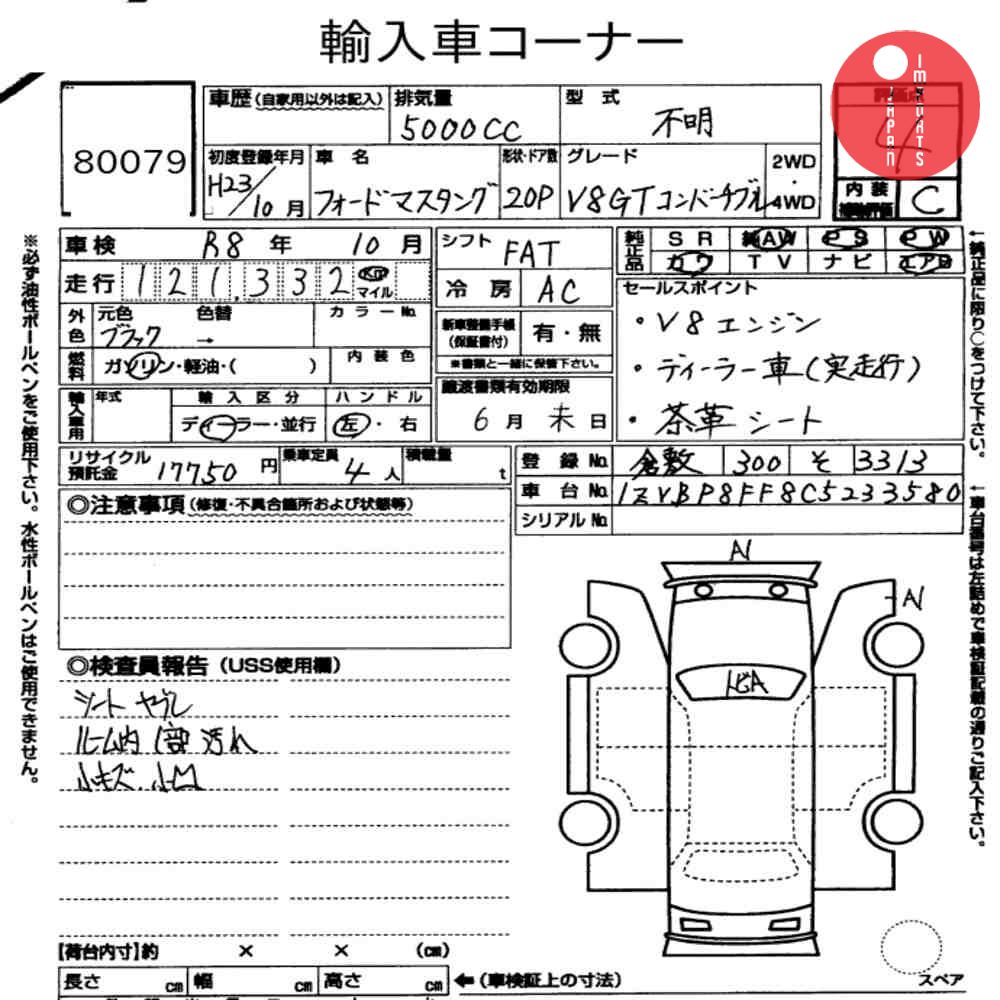 輸入車コーナー
IMPORTS JAPAN
80079
車歴(自家用以外は記入)
排気量 5000CC
型式 不明
評価点 4
初度登録年月 H23/10月
車名 フォードマスタング
形状・ドア数 2OP
グレード V8GTコンバーチブル
2WD・4WD
内装 補助評価 C
車検 R8年10月
走行 121,332 Km マイル
シフト FAT
冷房 AC
純正品 SR 純AW PS PW
カワ TV ナビ エアB
外色 元色 ブラック 色替 → カラーNo.
燃料 ガソリン・軽油・( ) 内装色
新車整備手帳(保証書付) 有・無
※書類と一緒に保管下さい。
セールスポイント
・V8エンジン
・ディーラー車(実走行)
・茶革シート
輸入車用 年式 輸入区分 ディーラー・並行 ハンドル 左・右
譲渡書類有効期限 6月末日
リサイクル預託金 17750円 乗車定員 4人 積載量 t
登録No. 倉敷 300 そ 3313
車台No. 1ZVBP8FF8C5233580
シリアルNo.
◎注意事項(修復・不具合箇所および状態等)
◎検査員報告(USS使用欄)
シート ヤブレ
ルーム内 1部 汚れ
小キズ、小凹
A1
A1
トビA
【荷台内寸】約 × × (cm)
長さ cm 幅 cm 高さ cm ←(車検証上の寸法)
スペア
※必ず油性ボールペンをご使用下さい。水性ボールペンはご使用できません。
←純正品に限り○をつけて下さい。
←車台番号は左詰めで車検証記載の通りご記入下さい。